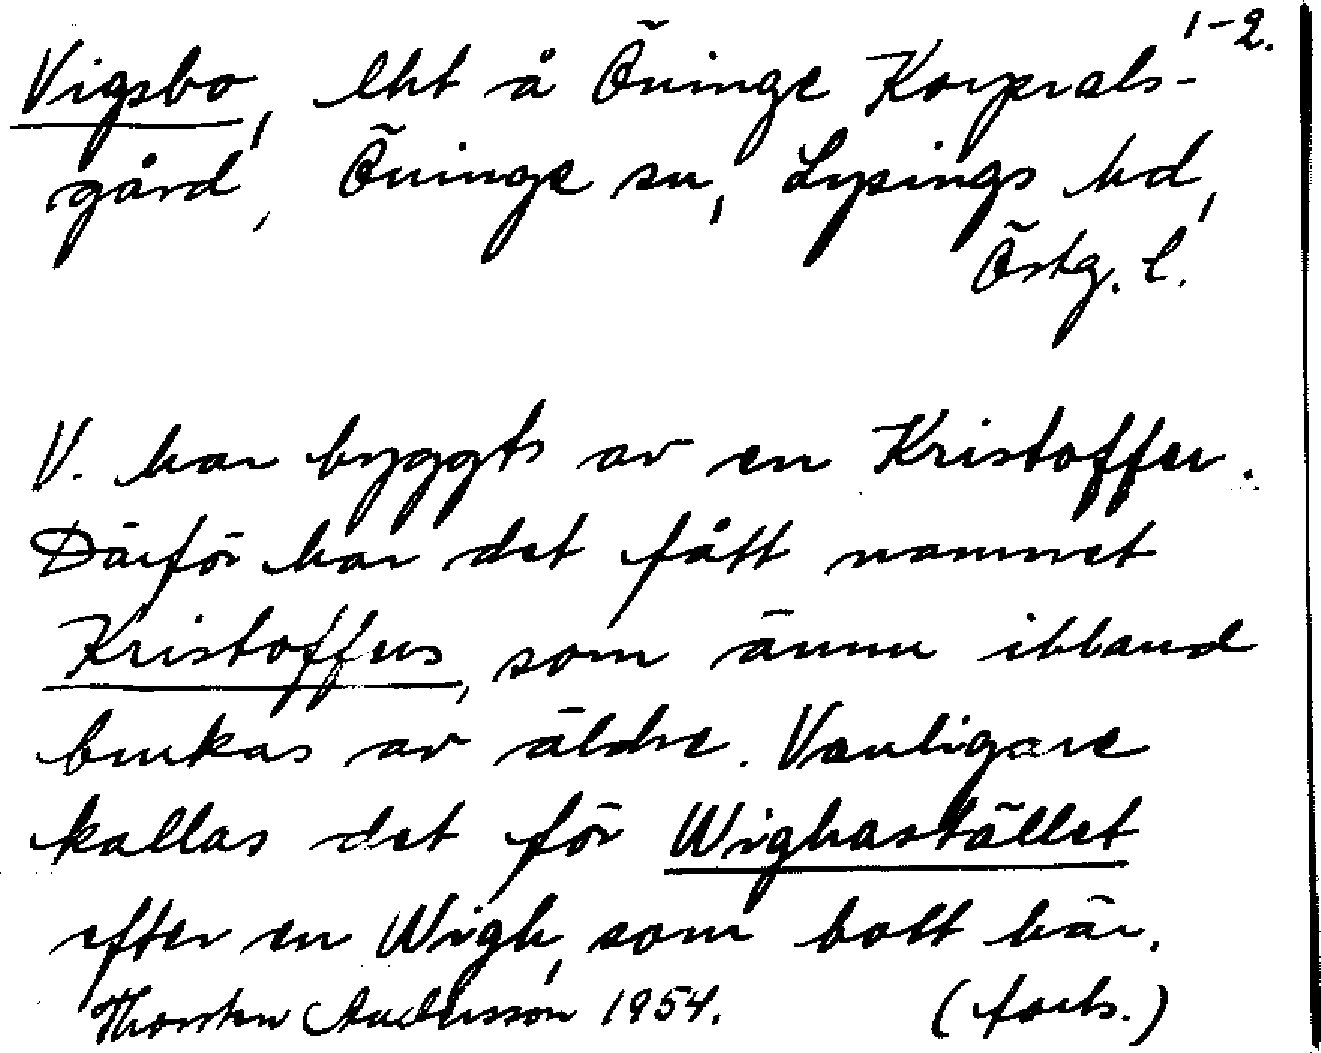 1-2.
Vigsbo, lht å Öninge Korprals-
gård, Öninge sn, Lysings hd,
Östg. l.
V. har byggts av en Kristoffer.
Därför har det fått namnet
Kristoffers, som ännu ibland
brukas av äldre. Vanligare
kallas det för Wighastället
efter en Wigh, som bott här.
Thorsten Andersson 1954. (forts.)